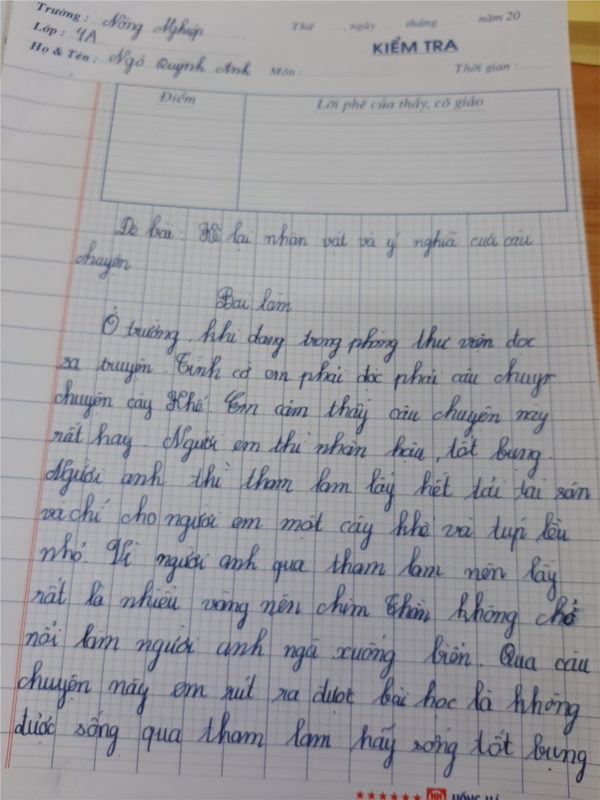 Trường: Nông Nghiệp
Thứ ......, ngày ...... tháng ...... năm 20
Lớp: 4A
KIỂM TRA
Họ & Tên: Ngô Quỳnh Anh
Môn:
Thời gian:
Điểm
Lời phê của thầy, cô giáo
Đề bài: Kể lại nhân vật và ý nghĩa cuả câu
chuyện
Bai làm
Ở trường, khi đang trong phòng thư viện đọc
ra truyện. Tình cờ em phải đọc phải câu chuyr
chuyện cây Khế. Em cảm thấy câu chuyện này
rất hay. Người em thì nhân hâu, tốt bụng.
Người anh thì tham lam lấy hết tái tai sản
và chỉ cho người em một cây khê và tup lều
nhỏ. Vì người anh qua tham lam nên lấy
rất là nhiều vàng nên chim thần không chở
nổi làm người anh ngã xuống biển. Qua câu
chuyện này em rút ra được bài học là không
được sống qua tham lam hãy sống tốt bụng
HỒNG HÀ